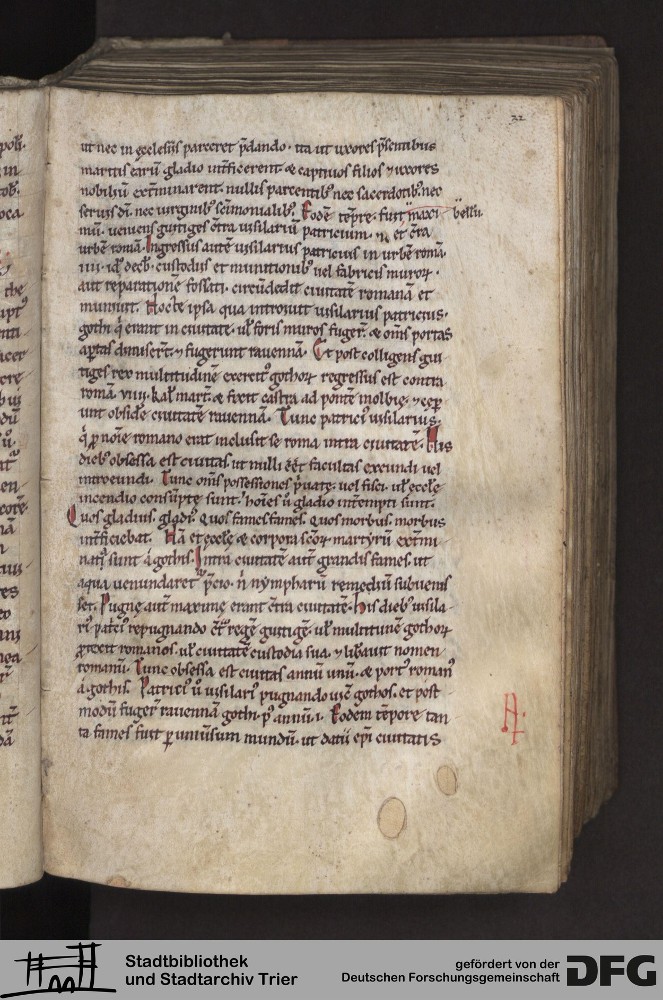 32
ut nec in ęcclesiis parceret p̄dando. ita ut uxores p̄sentibus
maritis earū gladio int̄ficerent. & captiuos filios ⁊ uxores
nobiliū ext̄minarent. nullis parcentib; nec sacerdotib; nec
seruis dī. nec uirginib; sc̄imonialib;. Eodē tēpre fuit maxi-
bellū
mū. ueniens guitiges ct̄ra uisilariū patricium. et ct̄ra
urbē romā. Ingressus autē uisilarius patricius in urbē romā.
IIII. id decb̄. custodiis et munitionib; uel fabricis muroꝝ.
aut reparatione fossati. circūdedit ciuitatē romanā et
muniuit. Nocte ipsa qua introiuit uisilarius patricius.
gothi q̇ erant in ciuitate. ul̓ foris muros fuger̄. & om̄s portas
ap̄tas dimiser̄t. ⁊ fugerunt rauennā. Et post colligens gui
tiges rex multitudinē exercit᷒ gothoꝝ regressus est contra
romā. VIIII. kal̓ mart̄. & fixit castra ad pontē molbię. ⁊ cep̄
unt obsidē ciuitatē rauennā. Tunc patrici᷒ uisilarius.
q̇ ꝓ noīe romano erat inclusit se roma intra ciuitatē. His
dieb; obsessa est ciuitas ut nulli eēt facultas exeundi uel
introeundi. Tunc om̄s possessiones p̄uatę. uel fisci. ul̓ ęccl̄ę
incendio consūptę sunt. hoīes ū gladio int̄empti sunt.
Quos gladius. gladi᷒. quos fames fames. quos morbus. morbus
int̄ficiebat. Nā et ęccl̄ę & corpora sc̄oꝝ martyrū ext̄mi-
nati sunt á gothis. Intra ciuitatē aut̄ grandis fames. ut
aqua uenundaret᷒ p̄cio. n̄ nympharū remediū subuenis
set. Pugnę aut̄ maximę erant ct̄ra ciuitatē. His dieb; uisila-
ri᷒ patci᷒ repugnando ct̄ regē guitigē. ul̓ multitunē gothoꝝ
ꝓtexit romanos. ul̓ ciuitatē custodia sua. ⁊ lib̄auit nomen
romanū. Tunc obsessa est ciuitas annū unū. & port᷒ roman᷒
á gothis. Patrici᷒ ū uisilari᷒ pugnando uic̄ gothos. et post
modū fuger̄ rauennā gothi. p᷒ annū. I. Eodem tēpore tan
ta fames fuit ꝑ uniūsum mundū. ut datii ep̄i ciuitatis
A.
Stadtbibliothek
und Stadtarchiv Trier
gefördert von der
Deutschen Forschungsgemeinschaft
DFG